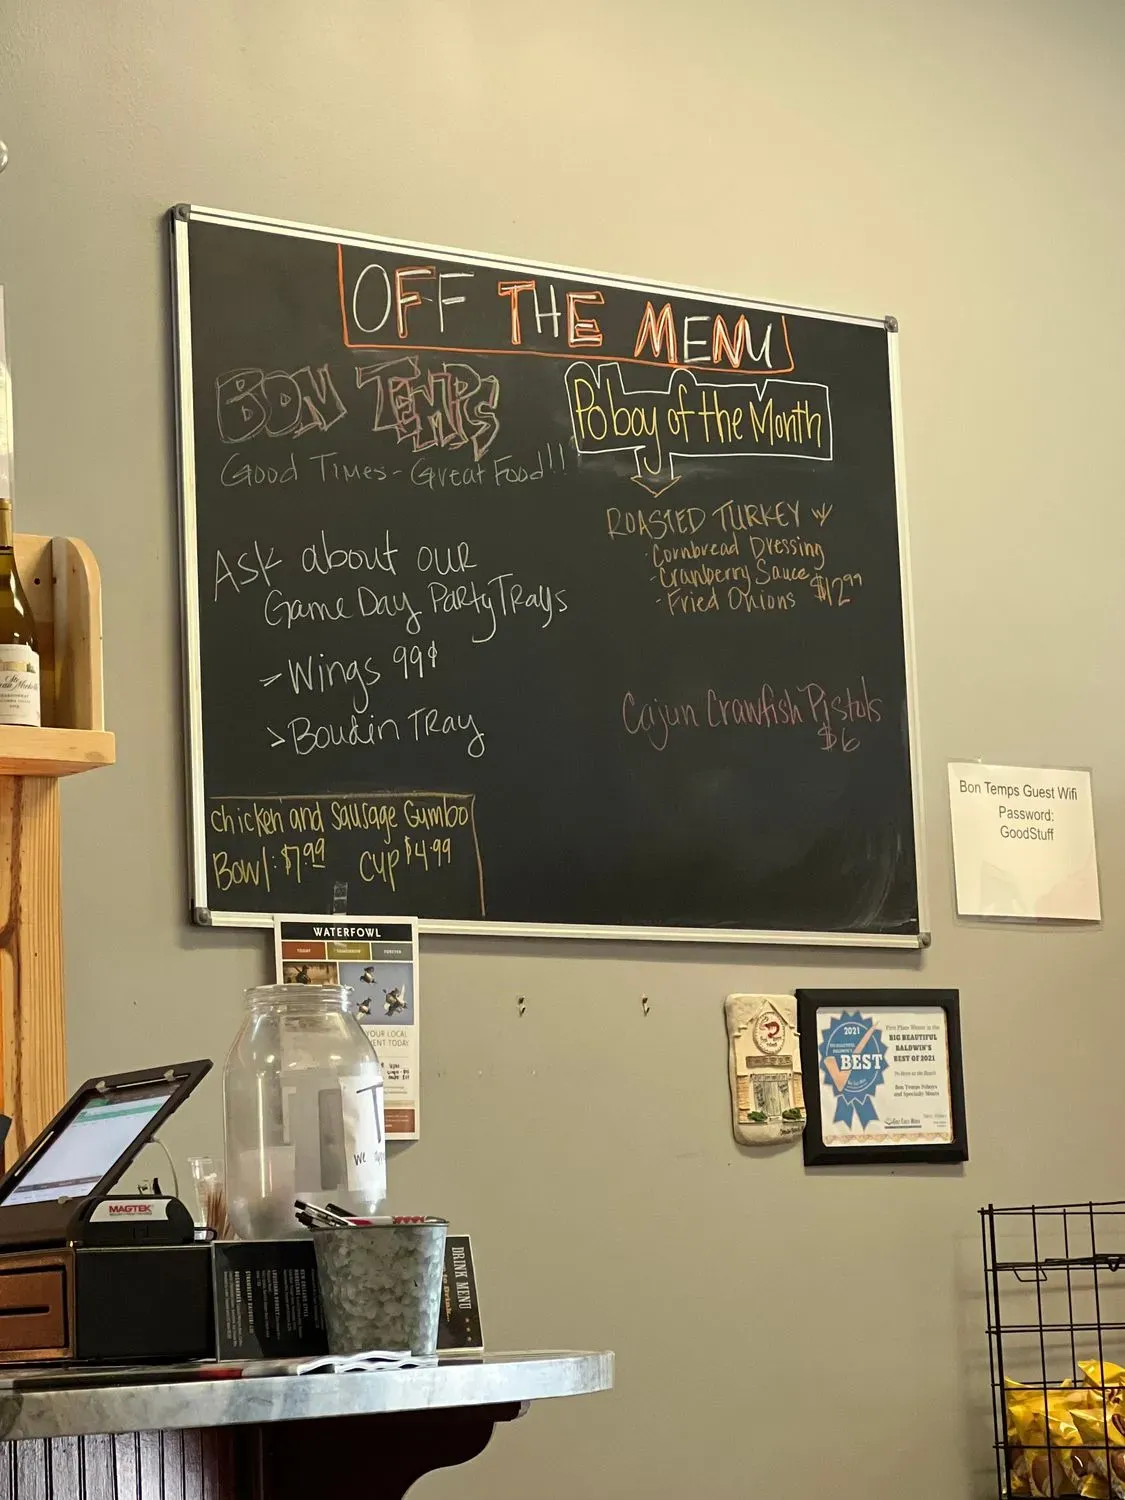 OFF THE MENU
BON TEMPS
Good Times - Great Food!!
Ask about our
Game Day Party Trays
> Wings 99¢
> Boudin Tray
chicken and sausage Gumbo
Bowl: $7.99 cup $4.99
Po boy of the Month
ROASTED TURKEY
· Cornbread Dressing
· Cranberry Sauce
· Fried Onions $12.99
Cajun Crawfish Pistols
$6
Bon Temps Guest Wifi
Password:
GoodStuff
WATERFOWL
TODAY TOMORROW FOREVER
YOUR LOCAL
TODAY
2021
BEST
First Place Winner in the
BIG BEAUTIFUL
BALDWIN'S
BEST OF 2021
Po Boys on the Beach
Bon Temps Poboys
and Specialty Meats
MAGTEK
T
we
DRINK MENU